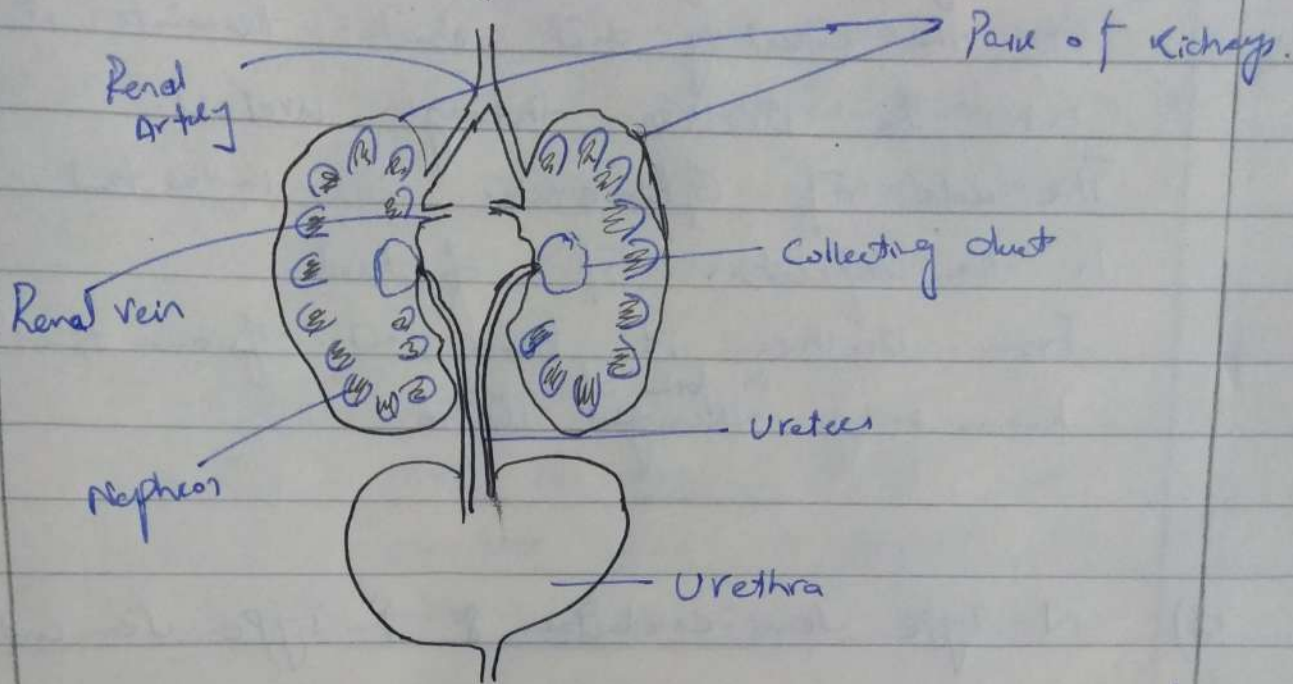 Renal
Artery
Pair of Kidneys.
Renal vein
Collecting duct
Ureters
Nephron
Urethra